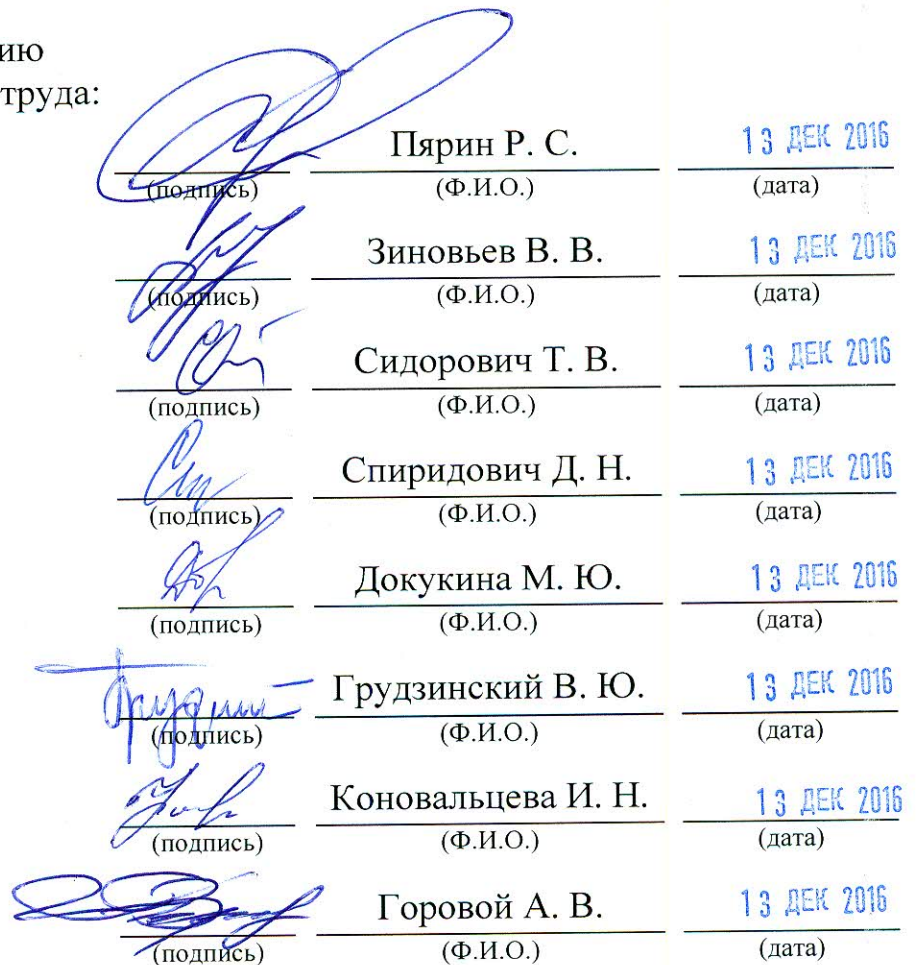 ию
труда:
Пярин Р. С. 13 ДЕК 2016
(подпись) (Ф.И.О.) (дата)
Зиновьев В. В. 13 ДЕК 2016
(подпись) (Ф.И.О.) (дата)
Сидорович Т. В. 13 ДЕК 2016
(подпись) (Ф.И.О.) (дата)
Спиридович Д. Н. 13 ДЕК 2016
(подпись) (Ф.И.О.) (дата)
Докукина М. Ю. 13 ДЕК 2016
(подпись) (Ф.И.О.) (дата)
Грудзинский В. Ю. 13 ДЕК 2016
(подпись) (Ф.И.О.) (дата)
Коновальцева И. Н. 13 ДЕК 2016
(подпись) (Ф.И.О.) (дата)
Горовой А. В. 13 ДЕК 2016
(подпись) (Ф.И.О.) (дата)